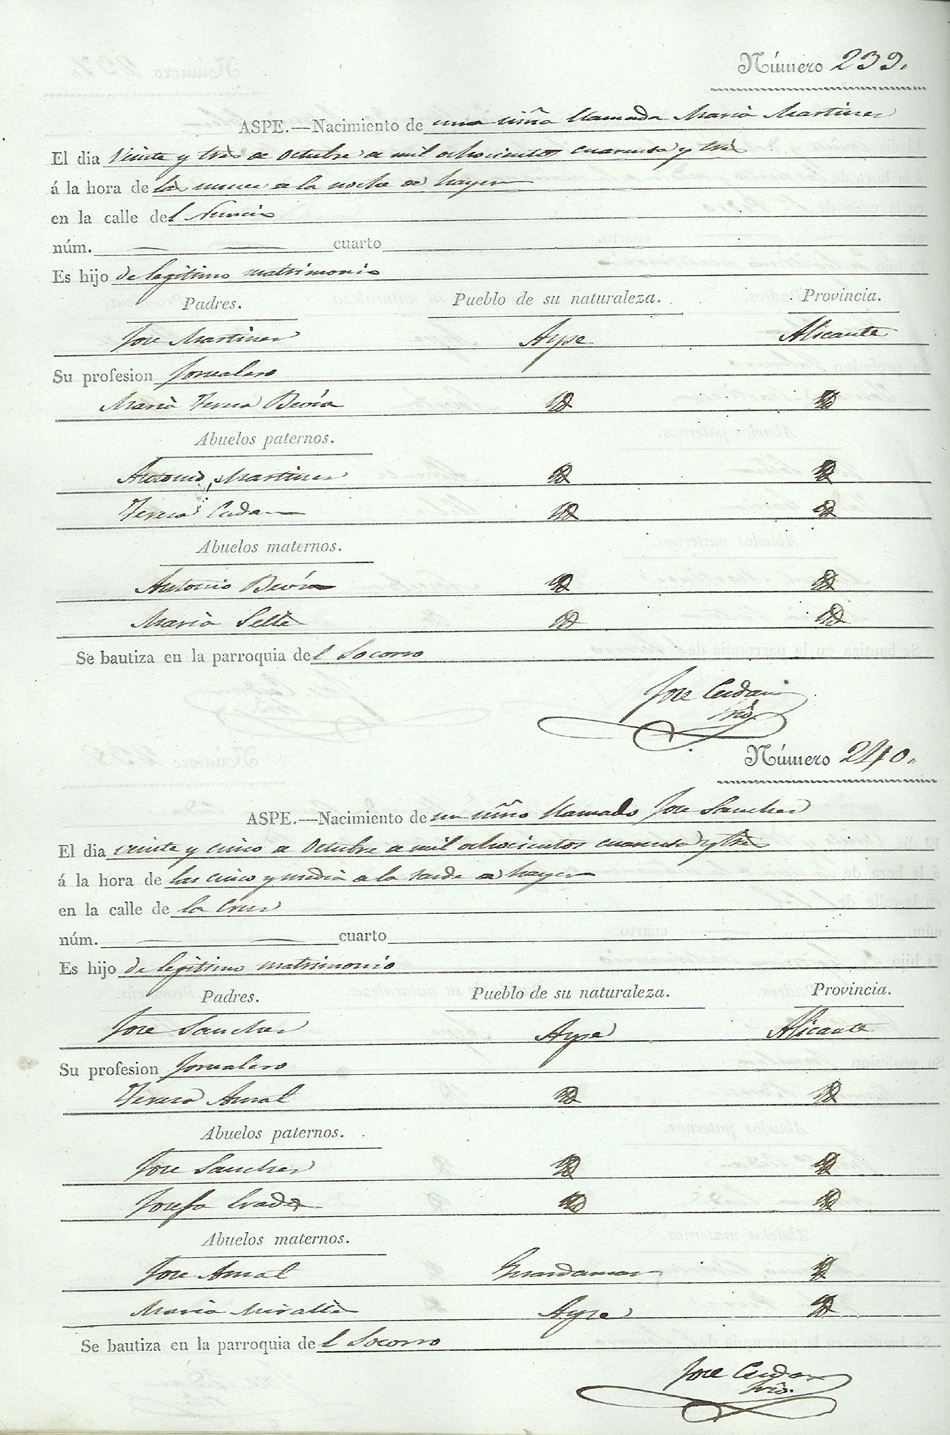 Número 239.
ASPE.—Nacimiento de una niña llamada Maria Martinez
El dia veinte y tres de Octubre de mil ochocientos cuarenta y tres
á la hora de las nueve de la noche de hayer
en la calle del Nuncio
núm. cuarto
Es hijo de legitimo matrimonio
Padres. Pueblo de su naturaleza. Provincia.
Jose Martinez Aspe Alicante
Su profesion Jornalero
Maria Teresa Id Id
Abuelos paternos.
Antonio Martinez Id Id
Teresa Cerdan Id Id
Abuelos maternos.
Antonio Id Id
Maria Id Id
Se bautiza en la parroquia del Socorro
Jose Cerdan
Srio.
Número 240.
ASPE.—Nacimiento de un niño llamado Jose Sanchez
El dia veinte y cinco de Octubre de mil ochocientos cuarenta y tres
á la hora de las cinco y media de la tarde de hayer
en la calle de la Cruz
núm. cuarto
Es hijo de legitimo matrimonio
Padres. Pueblo de su naturaleza. Provincia.
Jose Sanchez Aspe Alicante
Su profesion Jornalero
Teresa Id Id
Abuelos paternos.
Jose Sanchez Id Id
Josefa Id Id
Abuelos maternos.
Jose Guardamar Id
Maria Miralles Aspe Id
Se bautiza en la parroquia del Socorro
Jose Cerdan
Srio.